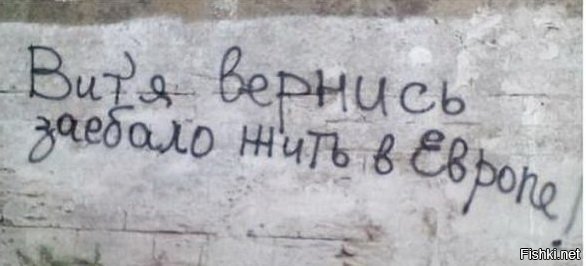 Вит'я вернись
заебало жить в Европе!
Fishki.net